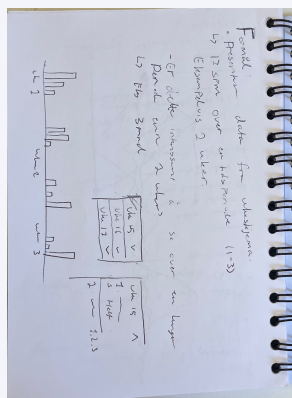 Formål
- presentere data fra ukeskjema.
↳ 12 spm over en tidsperiode (1-3)
Eksempelvis 2 uker.
- Er dette interessant å se over en lengre
periode enn 2 uker?
↳ Eks 3 mnd
uke 15 v
uke 16 v
uke 17 v
uke 19 ^
1
2 1,2,3
uke 2
uke 3